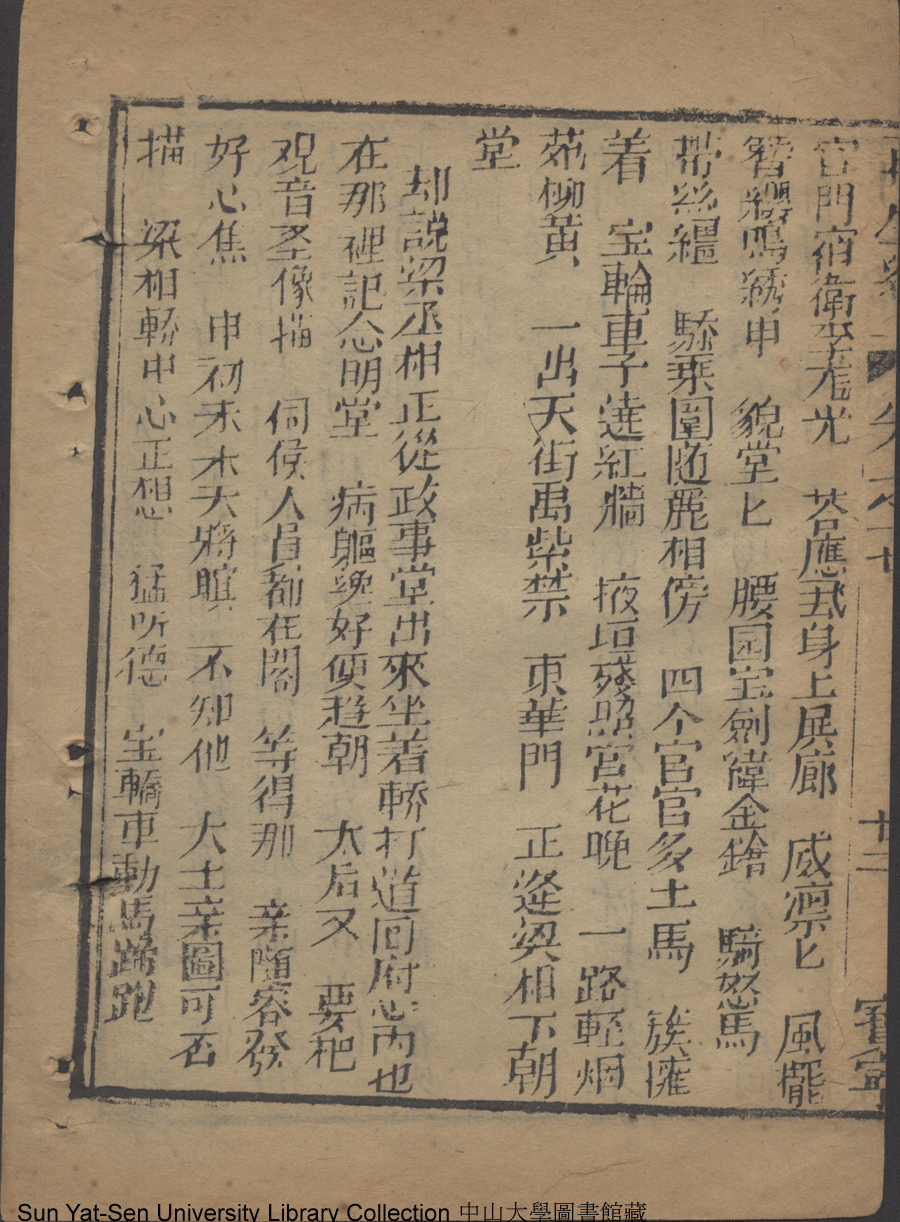 再生緣 卷之十七 十二 寶寧
宮門宿衛李尭光 荅應武身上展廊 威凛匕 風擺
簪纓鳴綉甲 貌堂匕 腰园宝劍褘金鎗 騎怒馬
帶絲繮 驂乗圍随麗相傍 四个官官多土馬 簇擁
着 宝輪車子薘紅牆 掖垣殘照宮花晚 一路輕烟
苑柳黄 一出天街禹紫禁 東華門 正逢梁相下朝
堂
却説梁丞相正從政事堂出來坐着轎打道囘府心内也
在那裡記念明堂 病軀晚好便趍朝 太后又 要杷
观音圣像描 伺侯人員都在閣 等得那 亲隨容發
好心焦 申初未未天將瞑 不知他 大士亲圖可否
描 梁相轎中心正想 猛所德 宝轎市動馬蹄跑
Sun Yat-Sen University Library Collection 中山大學圖書館藏